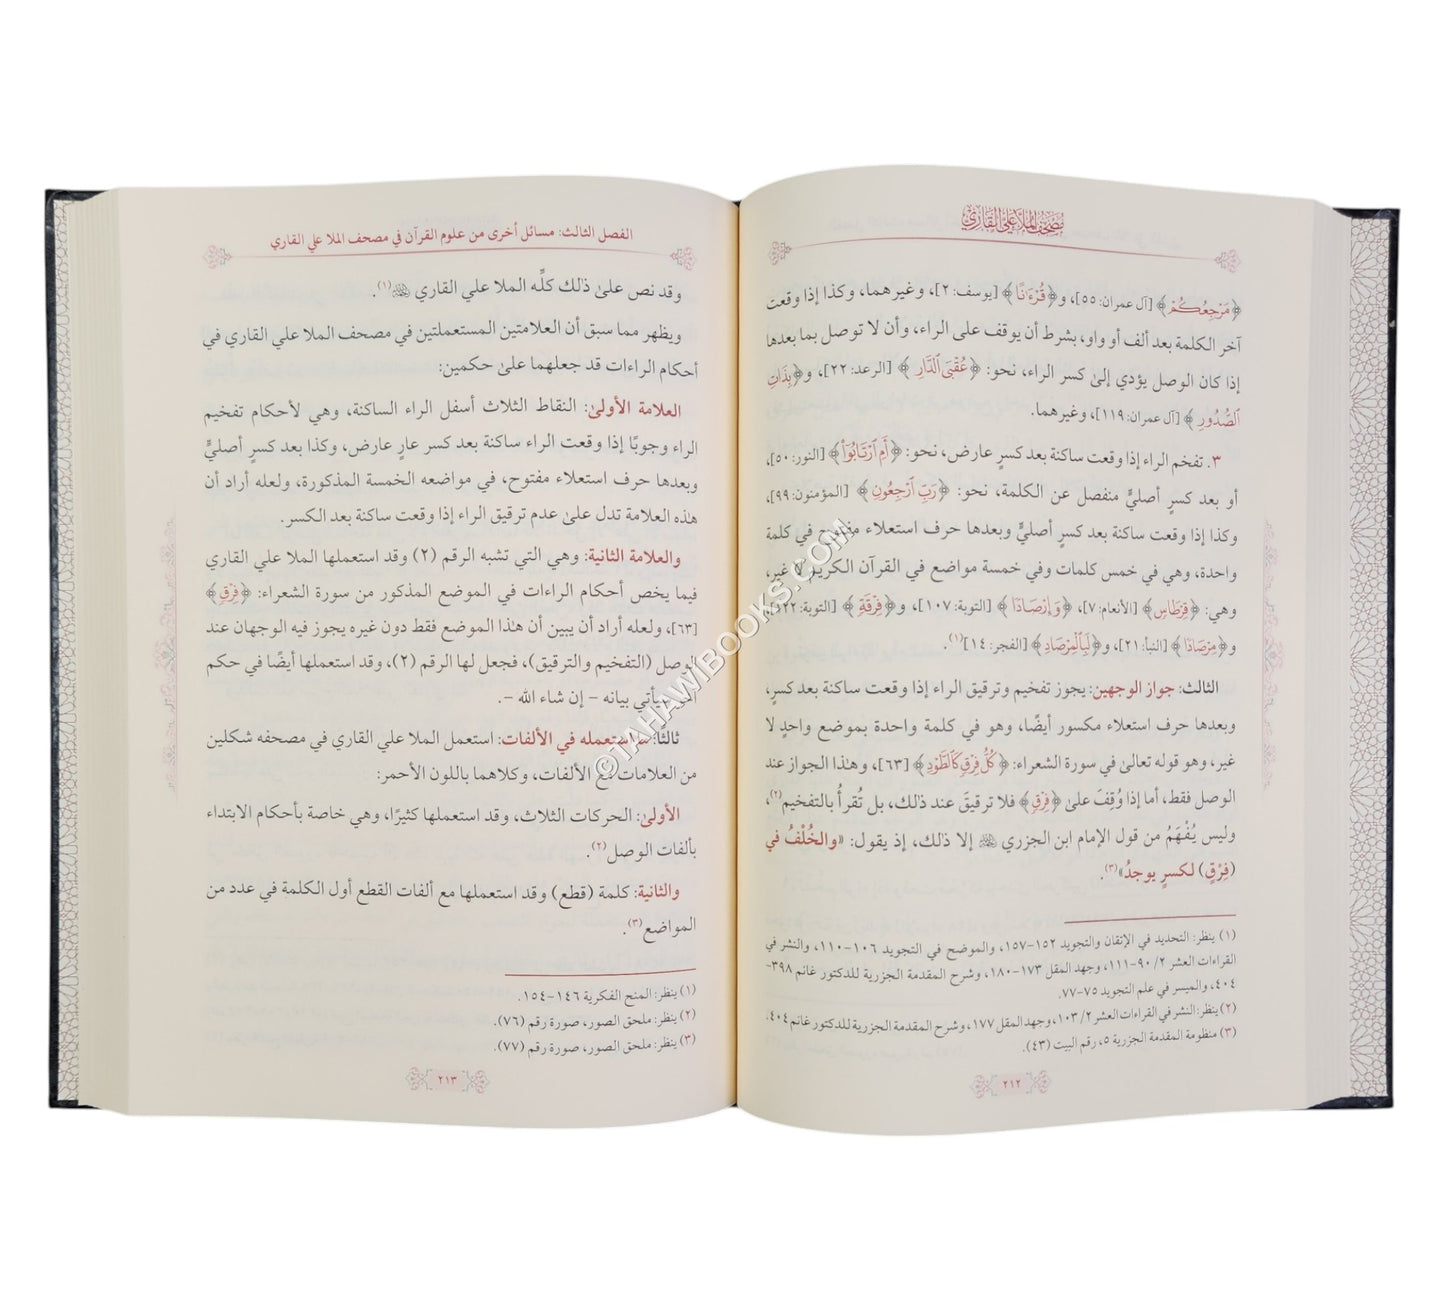 مصحف الملا علي القاري
﴿مَرْجِعُكُمْ﴾ [آل عمران: ٥٥]، و﴿قُرْءَٰنًا﴾ [يوسف: ٢]، وغيرهما، وكذا إذا وقعت
آخر الكلمة بعد ألف أو واو، بشرط أن يوقف على الراء، وأن لا توصل بما بعدها
إذا كان الوصل يؤدي إلىٰ كسر الراء، نحو: ﴿عُقْبَى ٱلدَّارِ﴾ [الرعد: ٢٢]، و﴿بِذَاتِ
ٱلصُّدُورِ﴾ [آل عمران: ١١٩]، وغيرهما.
٣. تفخم الراء إذا وقعت ساكنة بعد كسرٍ عارض، نحو: ﴿أَمِ ٱرْتَابُوٓا۟﴾ [النور: ٥٠]،
أو بعد كسرٍ أصليٍّ منفصل عن الكلمة، نحو: ﴿رَبِّ ٱرْجِعُونِ﴾ [المؤمنون: ٩٩]،
وكذا إذا وقعت ساكنة بعد كسرٍ أصليٍّ وبعدها حرف استعلاء مفتوح في كلمة
واحدة، وهي في خمس كلمات وفي خمسة مواضع في القرآن الكريم لا غير،
وهي: ﴿قِرْطَاسٍ﴾ [الأنعام: ٧]، ﴿وَإِرْصَادًا﴾ [التوبة: ١٠٧]، و﴿فِرْقَةٍ﴾ [التوبة: ١٢٢]،
و﴿مِرْصَادًا﴾ [النبأ: ٢١]، و﴿لَبِٱلْمِرْصَادِ﴾ [الفجر: ١٤]⁽¹⁾.
الثالث: جواز الوجهين: يجوز تفخيم وترقيق الراء إذا وقعت ساكنة بعد كسرٍ،
وبعدها حرف استعلاء مكسور أيضًا، وهو في كلمة واحدة بموضع واحدٍ لا
غير، وهو قوله تعالىٰ في سورة الشعراء: ﴿كُلُّ فِرْقٍ كَٱلطَّوْدِ﴾ [٦٣]، وهٰذا الجواز عند
الوصل فقط، أما إذا وُقِفَ علىٰ ﴿فِرْقٍ﴾ فلا ترقيقَ عند ذلك، بل تُقرأُ بالتفخيم(٢)،
وليس يُفْهَمُ من قول الإمام ابن الجزري ﷀ إلا ذلك، إذ يقول: «والخُلْفُ في
(فِرْقٍ) لكسرٍ يوجدُ»(٣).
(١) ينظر: التحديد في الإتقان والتجويد ١٥٢-١٥٧، والموضح في التجويد ١٠٦-١١٠، والنشر في
القراءات العشر ٢/ ٩٠-١١١، وجهد المقل ١٧٣-١٨٠، وشرح المقدمة الجزرية للدكتور غانم ٣٩٨-
٤٠٤، والميسر في علم التجويد ٧٥-٧٧.
(٢) ينظر: النشر في القراءات العشر ٢/ ١٠٣، وجهد المقل ١٧٧، وشرح المقدمة الجزرية للدكتور غانم ٤٠٤.
(٣) منظومة المقدمة الجزرية ٥، رقم البيت (٤٣).
٢١٢
الفصل الثالث: مسائل أخرى من علوم القرآن في مصحف الملا علي القاري
وقد نص علىٰ ذلك كلِّه الملا علي القاري ﷀ(١).
ويظهر مما سبق أن العلامتين المستعملتين في مصحف الملا علي القاري في
أحكام الراءات قد جعلهما علىٰ حكمين:
العلامة الأولىٰ: النقاط الثلاث أسفل الراء الساكنة، وهي لأحكام تفخيم
الراء وجوبًا إذا وقعت الراء ساكنة بعد كسر عارٍ عارض، وكذا بعد كسرٍ أصليٍّ
وبعدها حرف استعلاء مفتوح، في مواضعه الخمسة المذكورة، ولعله أراد أن
هٰذه العلامة تدل علىٰ عدم ترقيق الراء إذا وقعت ساكنة بعد الكسر.
والعلامة الثانية: وهي التي تشبه الرقم (٢) وقد استعملها الملا علي القاري
فيما يخص أحكام الراءات في الموضع المذكور من سورة الشعراء: ﴿فِرْقٍ﴾
[٦٣]، ولعله أراد أن يبين أن هٰذا الموضع فقط دون غيره يجوز فيه الوجهان عند
الوصل (التفخيم والترقيق)، فجعل لها الرقم (٢)، وقد استعملها أيضًا في حكم
سيأتي بيانه - إن شاء الله -.
ثالثًا: استعمله في الألفات: استعمل الملا علي القاري في مصحفه شكلين
من العلامات مع الألفات، وكلاهما باللون الأحمر:
الأولىٰ: الحركات الثلاث، وقد استعملها كثيرًا، وهي خاصة بأحكام الابتداء
بألفات الوصل(٢).
والثانية: كلمة (قطع) وقد استعملها مع ألفات القطع أول الكلمة في عدد من
المواضع(٣).
(١) ينظر: المنح الفكرية ١٤٦-١٥٤.
(٢) ينظر: ملحق الصور، صورة رقم (٧٦).
(٣) ينظر: ملحق الصور، صورة رقم (٧٧).
٢١٣
©TAHAWIBOOKS.COM